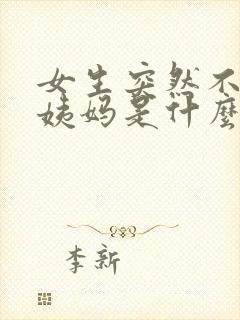 女生突然不
姨妈是什麼
李新